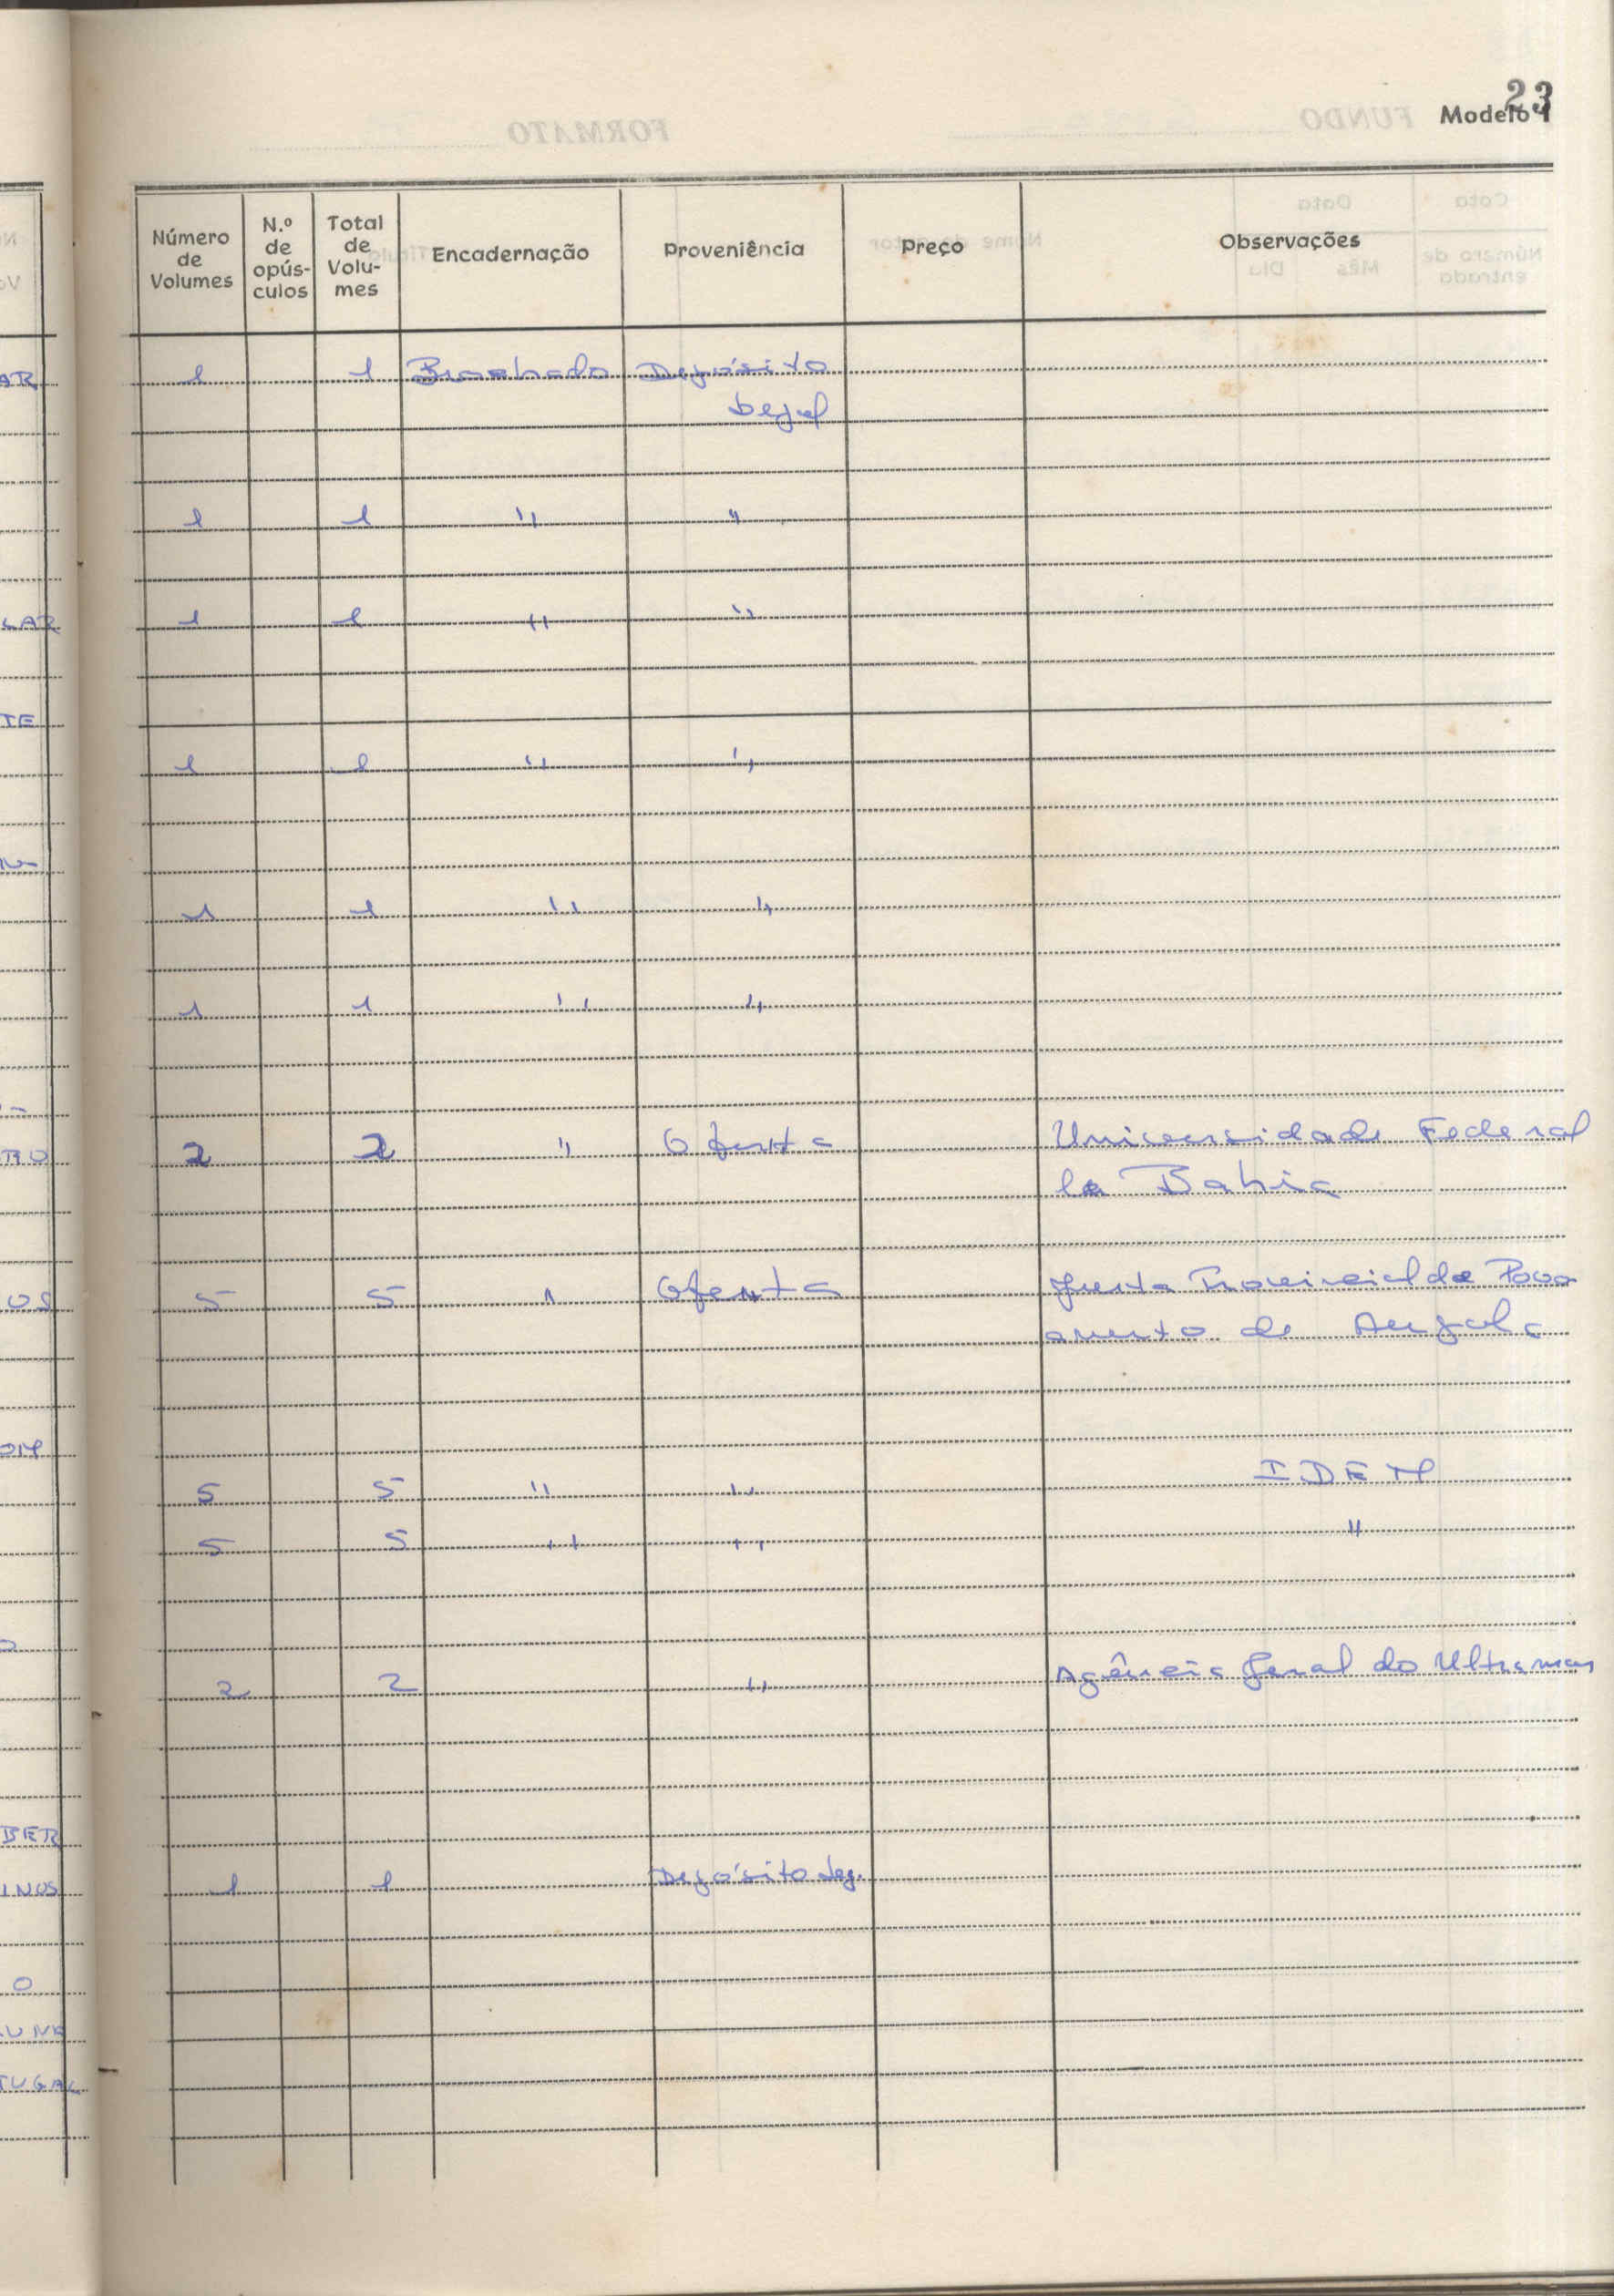 23
Modelo 1
Número de Volumes | N.º de opús-culos | Total de Volu-mes | Encadernação | Proveniência | Preço | Observações
1 1 Brochado Depósito
Legal
1 1 " "
1 1 " "
1 1 " "
1 1 " "
1 1 " "
2 2 " Oferta Universidade Federal
la Bahia
5 5 " Oferta Junta Provincial de Povo
amento de Angola
5 5 " " IDEM
5 5 " " "
2 2 " Agência Geral do Ultramar
1 1 Depósito Leg.
AR
LAR
TE
RO
OS
OM
BER
INOS
O
UNE
TUGAL